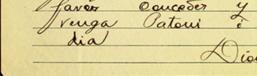 favor conceder y
venga Patoni é
dia
Dios